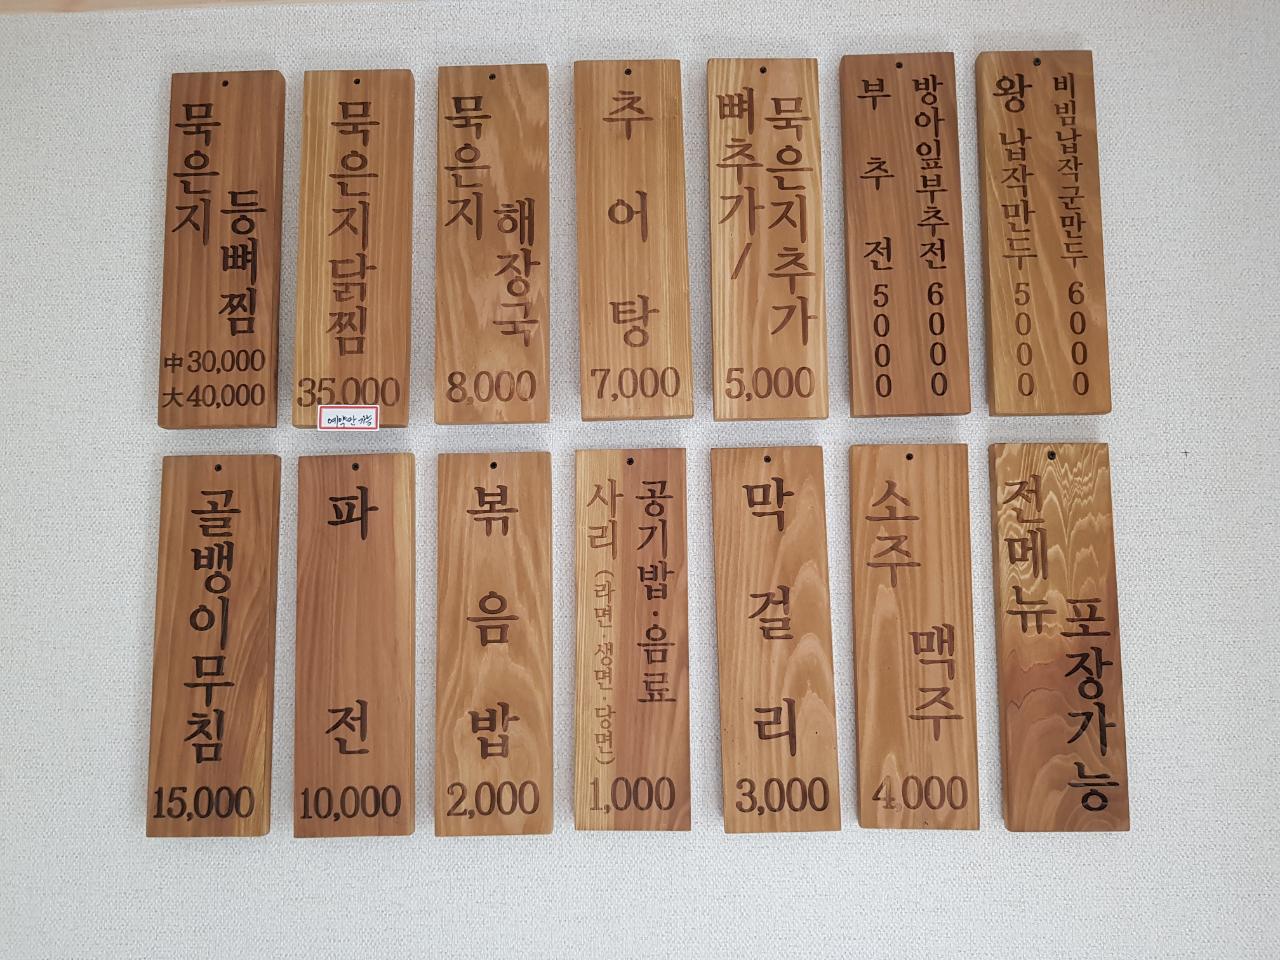 묵은지
등뼈찜
中30,000
大40,000
묵은지닭찜
35,000
예약만 가능
묵은지
해장국
8,000
추어탕
7,000
뼈추가/
묵은지추가
5,000
부추전
5000
방아잎부추전
6000
왕납작만두
5000
비빔납작군만두
6000
골뱅이무침
15,000
파전
10,000
볶음밥
2,000
공기밥·음료
사리(라면·생면·당면)
1,000
막걸리
3,000
소주
맥주
4,000
전메뉴
포장가능